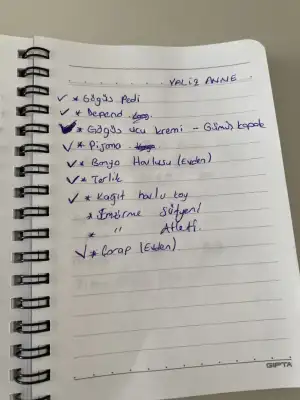 VALİZ ANNE
✓ * Göğüs Pedi
✓ * Depend
✓ * Göğüs ucu kremi - Gümüş kapak
✓ * Pijama
✓ * Banyo Havlusu (Evden)
✓ * Terlik
✓ * Kağıt havlu
* Emzirme Sütyeni
* " Atleti
✓ * Çorap (Evden)
GIPTA